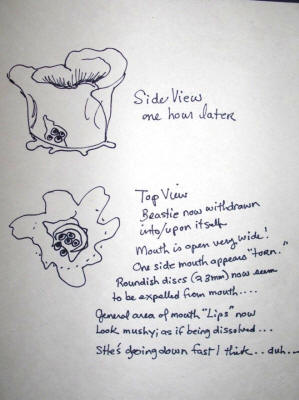 Side View
one hour later
Top View
Beastie now withdrawn
into/upon itself
Mouth is open very wide!
One side mouth appears "torn.."
Roundish discs (≈ 3mm) now seem
to be expelled from mouth....
General area of mouth "Lips" now
Look mushy; as if being dissolved...
She's going down fast I think... duh...